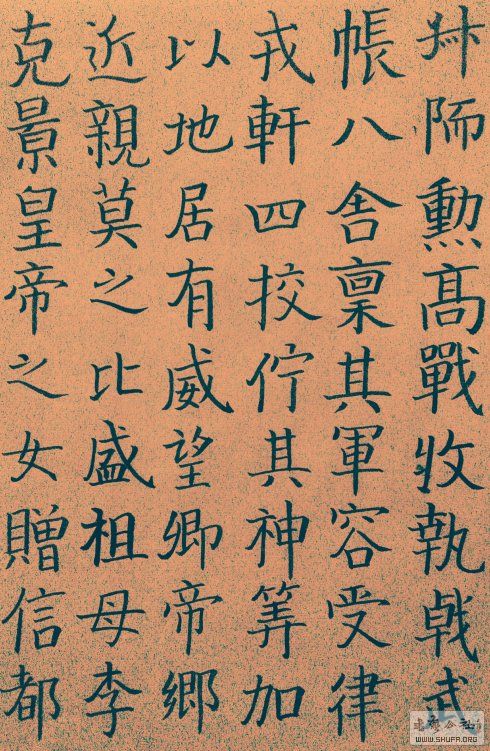 升陑勳高戰牧執戟武
帳八舎稟其軍容受律
戎軒四挍佇其神筭加
以地居有威望卿帝鄉
近親莫之比盛祖母李
克景皇帝之女贈信都
WWW.SHUFA.ORG